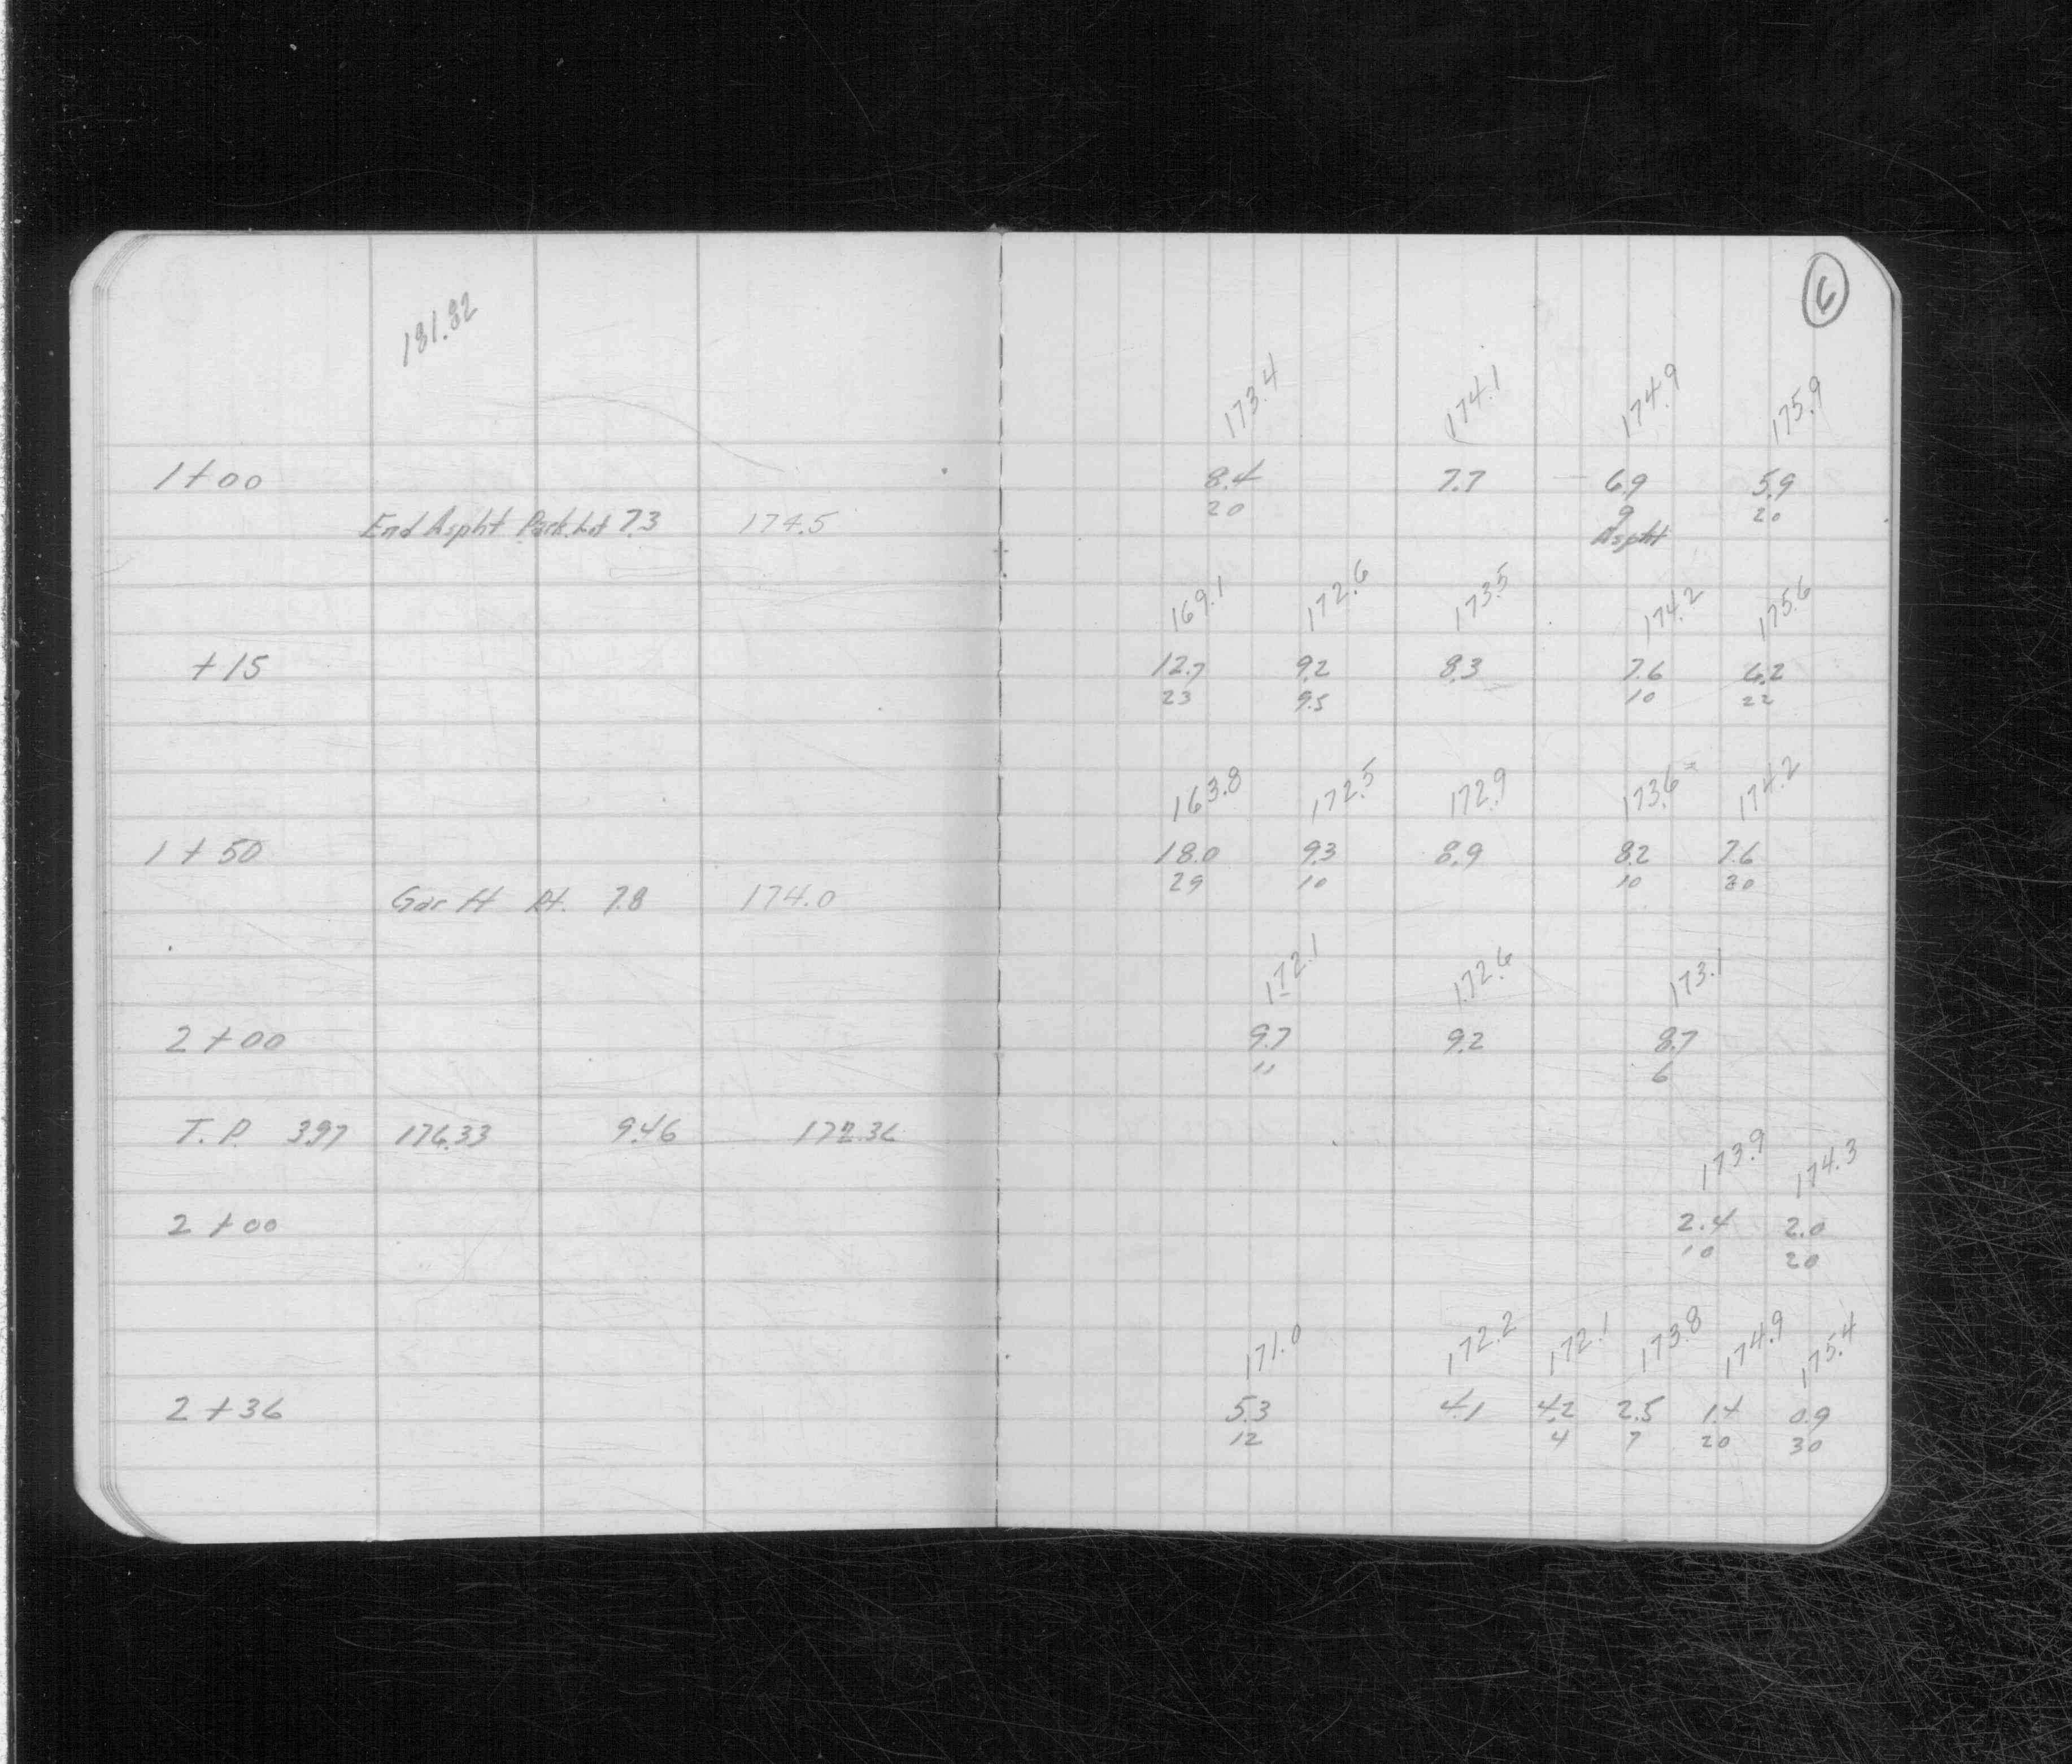 6
181.82
173.4 174.1 174.9 175.9
1+00 8.4 7.7 6.9 5.9
20 9 20
End Aspht Park. Lot 7.3 174.5 Aspht
169.1 172.6 173.5 174.2 175.6
+15 12.7 9.2 8.3 7.6 6.2
23 9.5 10 22
163.8 172.5 172.9 173.6 174.2
1+50 18.0 9.3 8.9 8.2 7.6
29 10 10 20
Gar H 7.8 174.0
172.1 172.6 173.1
2+00 9.7 9.2 8.7
11 6
T.P. 3.97 176.33 9.46 172.36
173.9 174.3
2+00 2.4 2.0
10 20
171.0 172.2 172.1 173.8 174.9 175.4
2+36 5.3 4.1 4.2 2.5 1.4 0.9
12 4 7 20 30